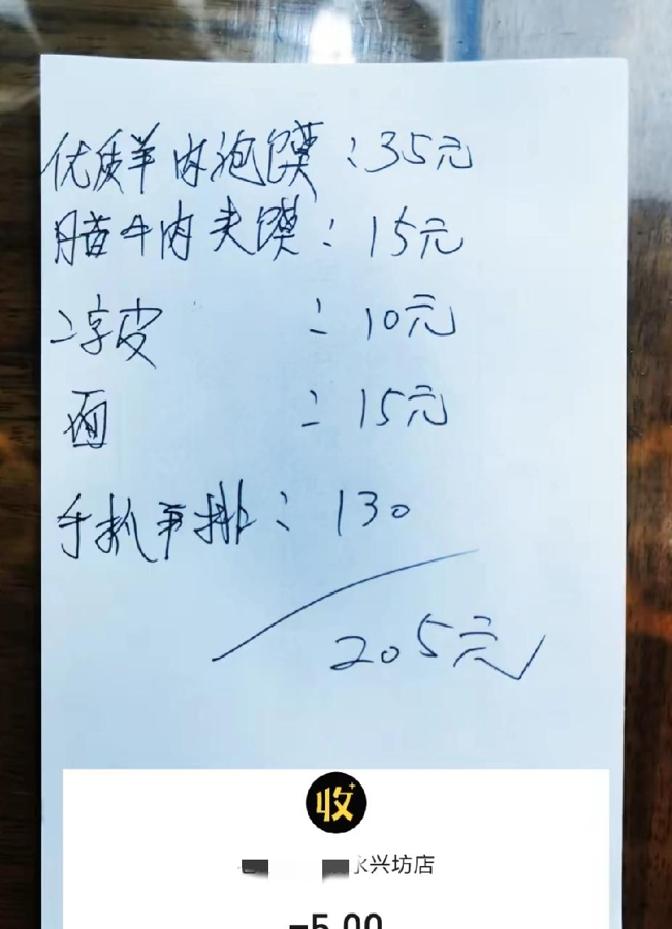 优质羊肉泡馍：35元
腊牛肉夹馍：15元
擀皮：10元
面：15元
手抓羊排：130
205元
收
永兴坊店
-5.00